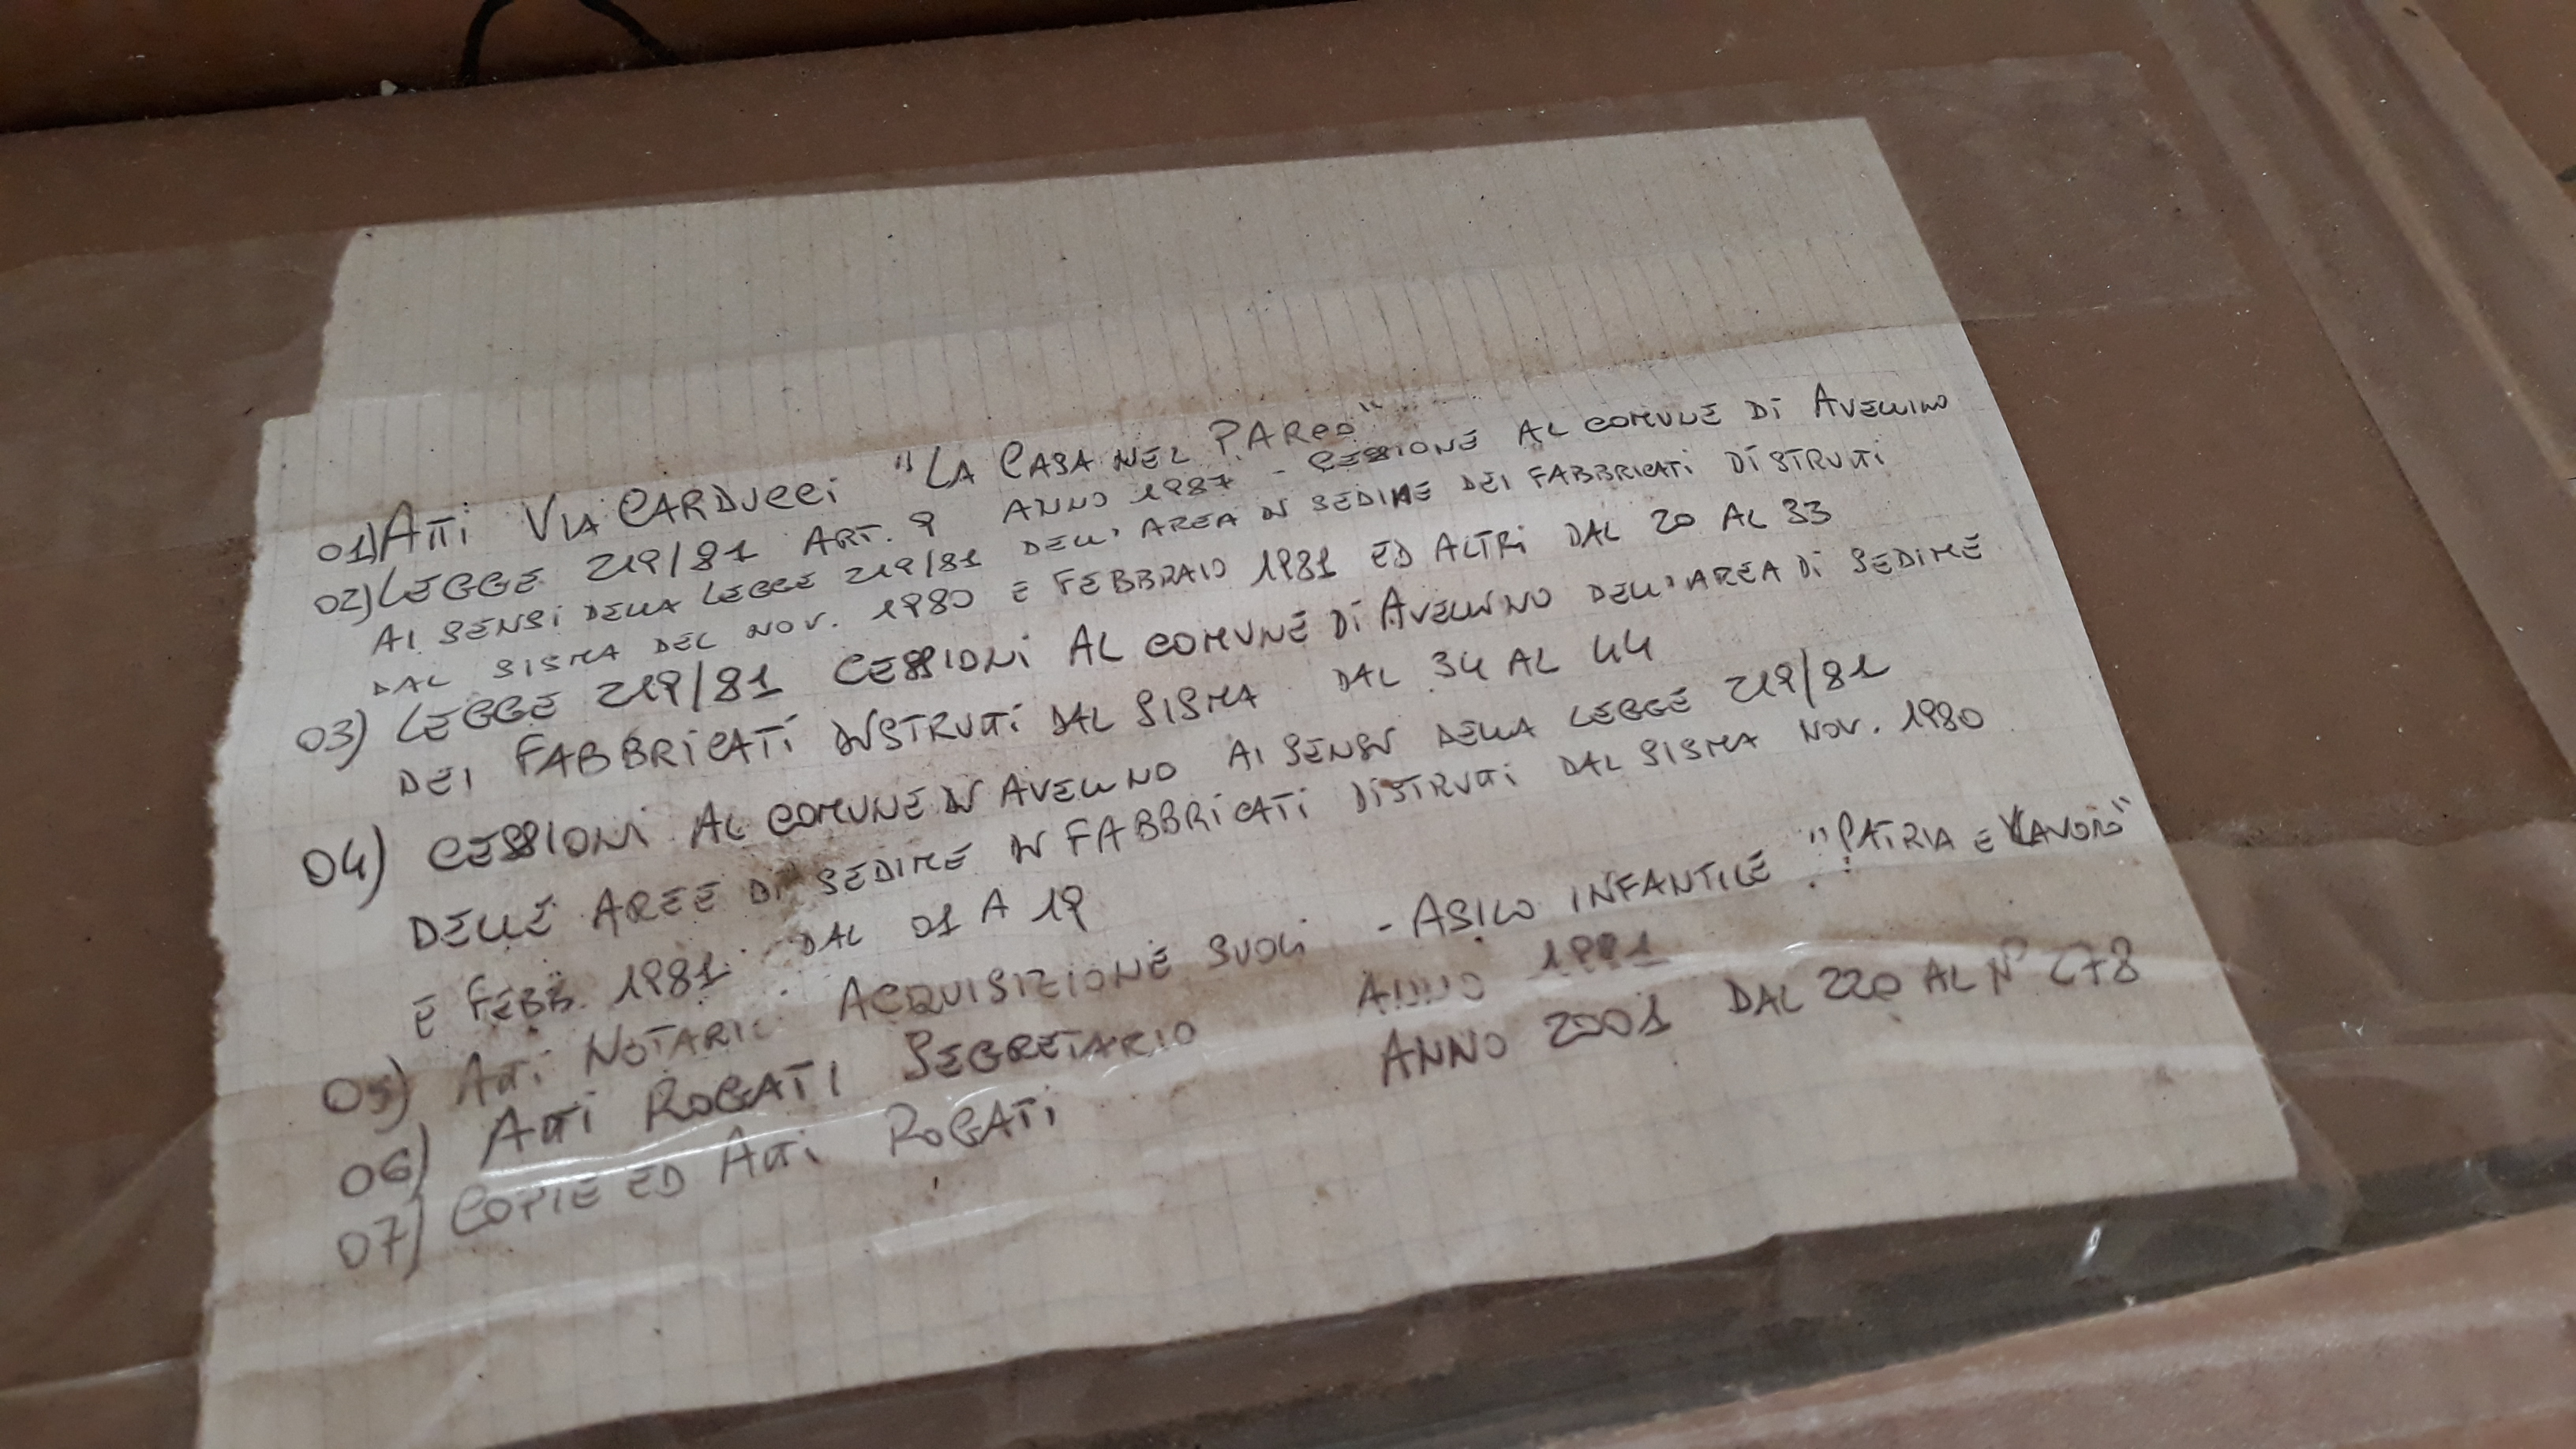 01) ATTI VIA CARDUCCI "LA CASA NEL PARCO"
02) LEGGE 219/81 ART. 9 ANNO 1987 - CESSIONE AL COMUNE DI AVELLINO
AI SENSI DELLA LEGGE 219/81 DELL'AREA DI SEDIME DEI FABBRICATI DISTRUTTI
DAL SISMA DEL NOV. 1980 E FEBBRAIO 1981 ED ALTRI DAL 20 AL 33
03) LEGGE 219/81 CESSIONI AL COMUNE DI AVELLINO DELL'AREA DI SEDIME
DEI FABBRICATI DISTRUTTI DAL SISMA DAL 34 AL 44
04) CESSIONI AL COMUNE DI AVELLINO AI SENSI DELLA LEGGE 219/81
DELLE AREE DI SEDIME DI FABBRICATI DISTRUTTI DAL SISMA NOV. 1980
E FEBB. 1981 DAL 01 A 19
05) ATTI NOTARILI ACQUISIZIONE SUOLI - ASILO INFANTILE "PATRIA E LAVORO"
06) ATTI ROGATI SEGRETARIO ANNO 1991
07) COPIE ED ATTI ROGATI ANNO 2001 DAL 220 AL N°